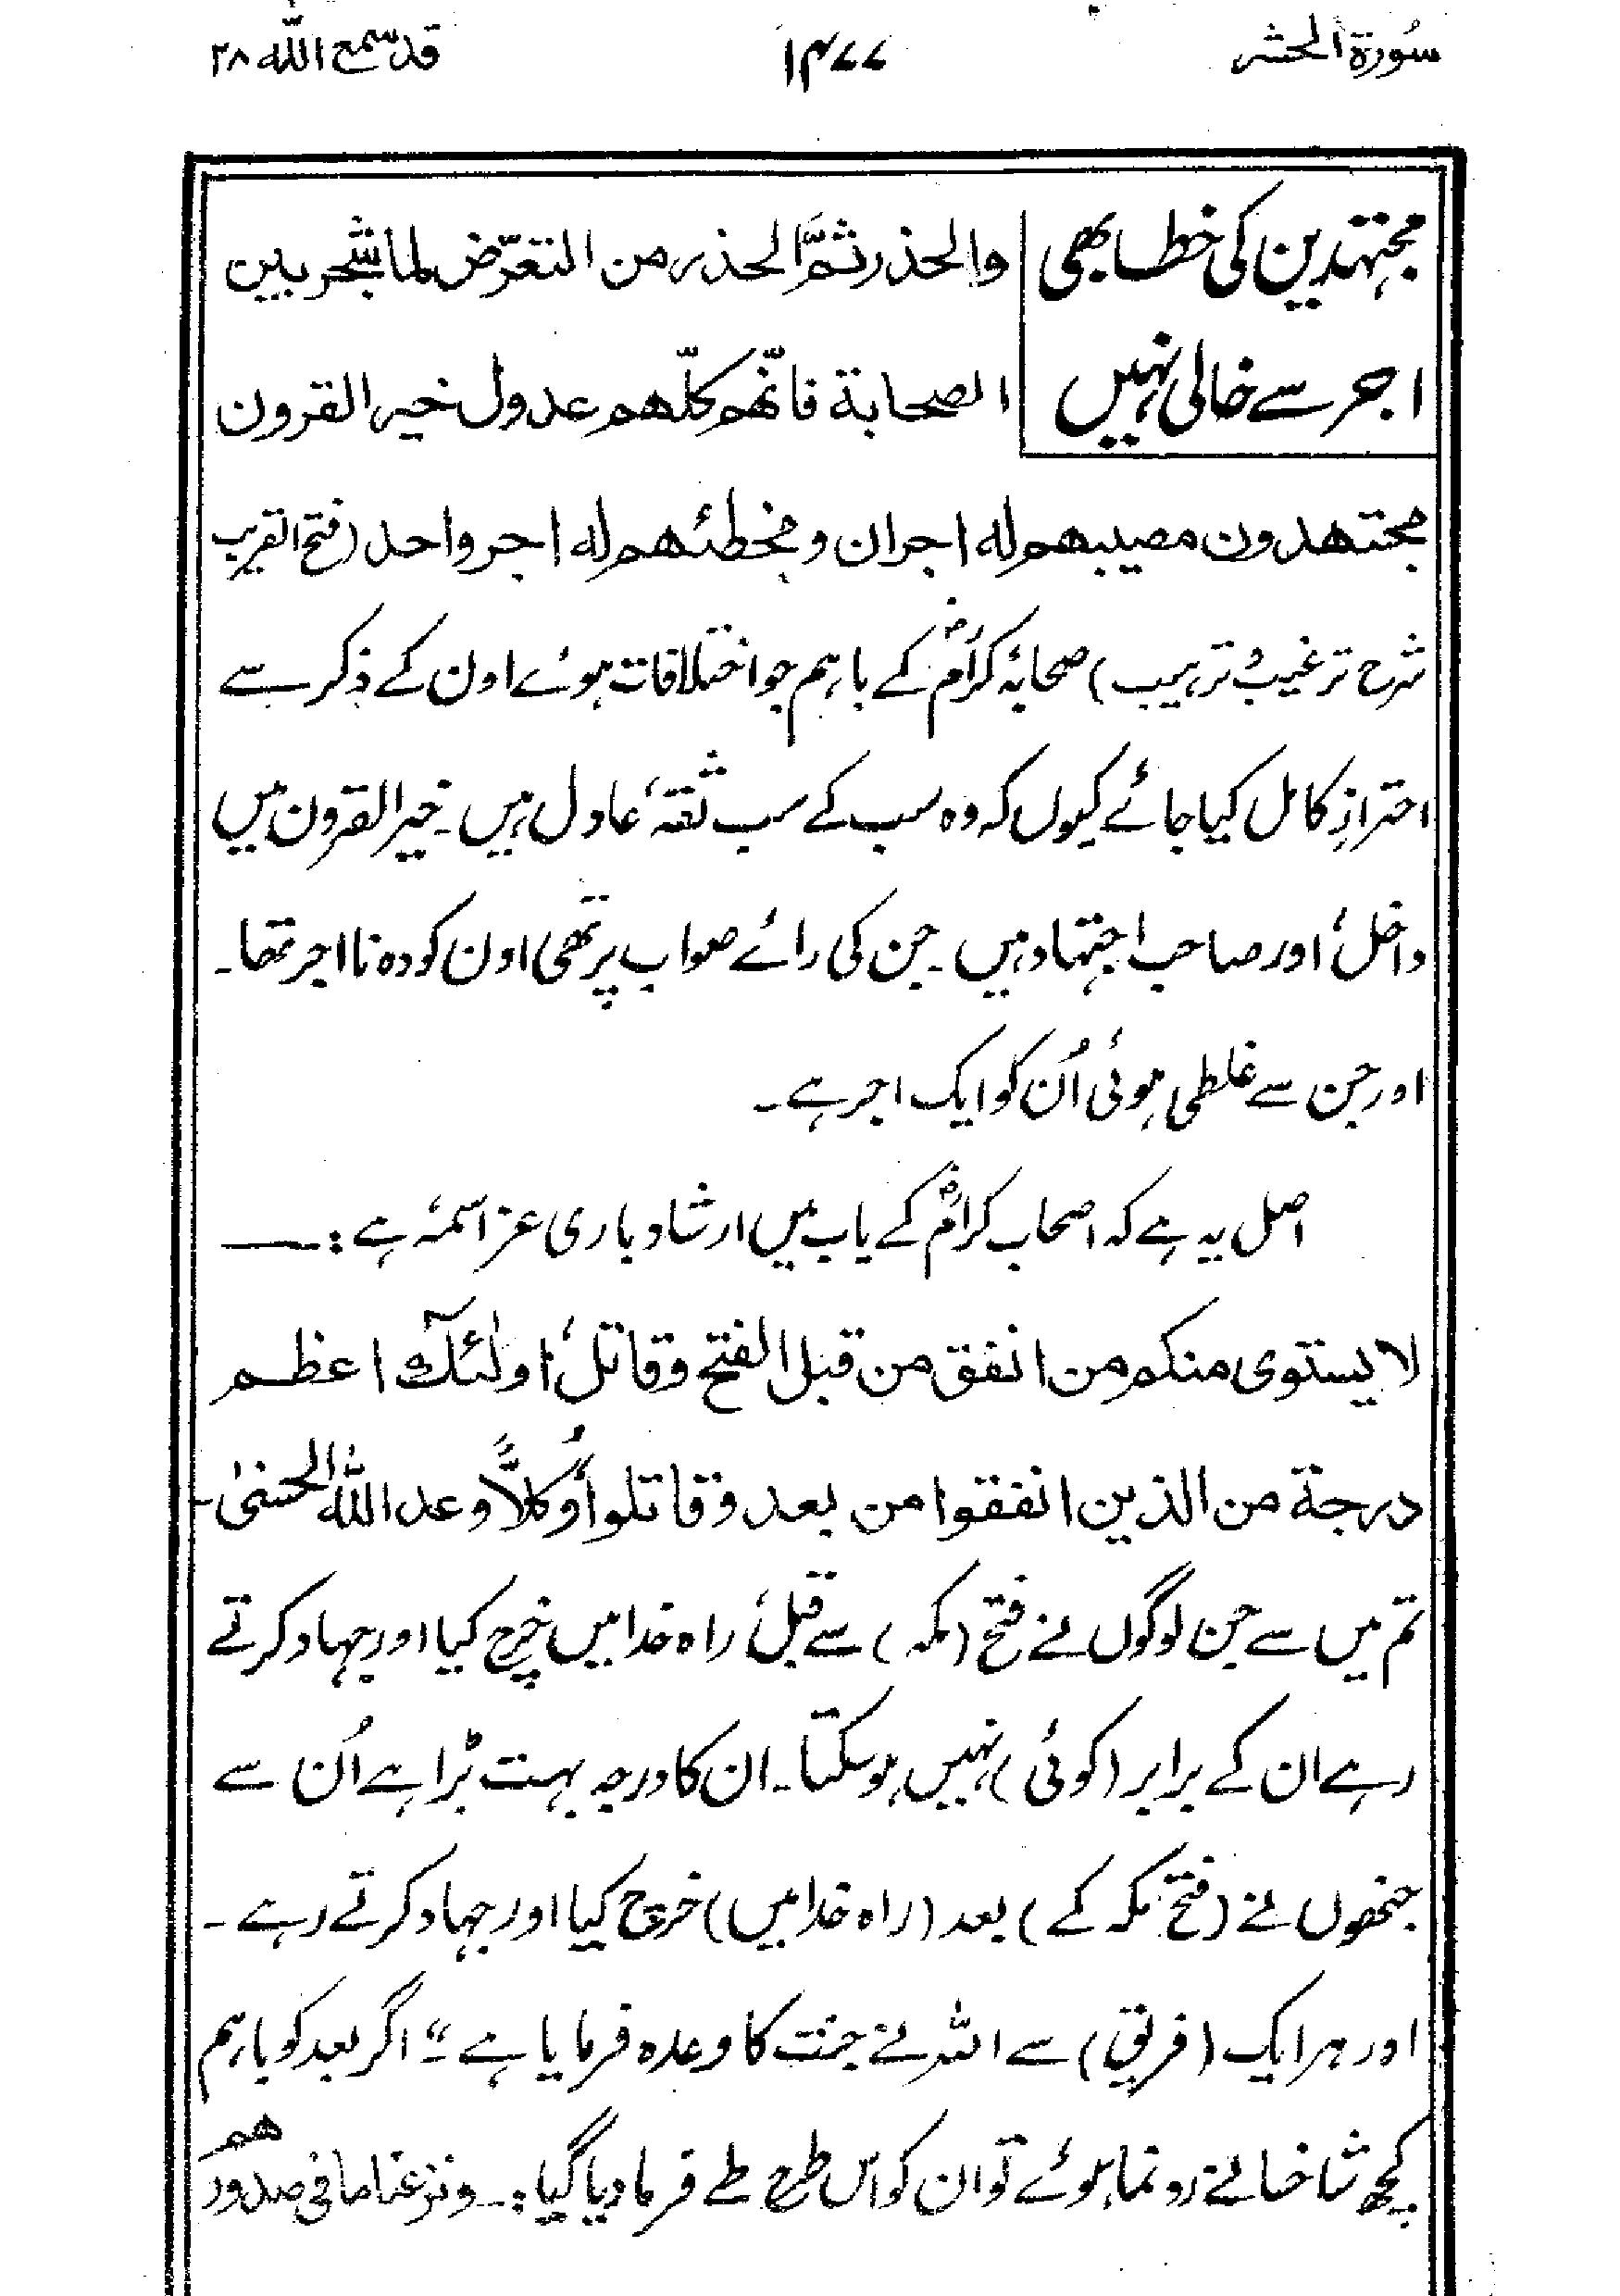 سُورۃ الحشر ۱۴۷۷ قد سمع اللہ ۲۸
مجتہدین کی خطا بھی
اجر سے خالی نہیں
والحذر ثمَّ الحذر من التعرّض لما شجر بین
الصحابة فانّهم كلّهم عدول خیر القرون
مجتهدون مصیبهم له اجران و مخطئهم له اجر واحد (فتح القریب
شرح ترغیب و ترہیب) صحابۂ کرامؓ کے باہم جو اختلافات ہوئے اون کے ذکر سے
احترازِ کامل کیا جائے کیوں کہ وہ سب کے سب ثقہ، عادل ہیں۔ خیر القرون میں
داخل، اور صاحب اجتہاد ہیں۔ جن کی رائے صواب پر تھی اون کو دہ نا اجر تھا۔
اور جن سے غلطی ہوئی اُن کو ایک اجر ہے۔
اصل یہ ہے کہ اصحاب کرامؓ کے باب میں ارشاد باری عز اسمہٗ ہے :ــــــ
لا یستوی منکم من انفق من قبل الفتح وقاتل، اولٰئك اعظم
درجة من الذین انفقوا من بعد وقاتلوا، وَکُلاًّ وعد اللہ الحسنیٰ۔
تم میں سے جن لوگوں نے فتح (مکہ) سے قبل، راہ خدا میں خرچ کیا اور جہاد کرتے
رہے ان کے برابر (کوئی) نہیں ہو سکتا۔ ان کا درجہ بہت بڑا ہے اُن سے
جنھوں نے (فتح مکہ کے) بعد (راہ خدا میں) خرچ کیا اور جہاد کرتے رہے۔
اور ہر ایک (فریق) سے اللہ نے جنت کا وعدہ فرمایا ہے۔“ اگر بعد کو باہم
کچھ شاخسانے رونما ہوئے تو ان کو اس طرح طے فرما دیا گیا :۔ ونزعنا ما فی صدورهم